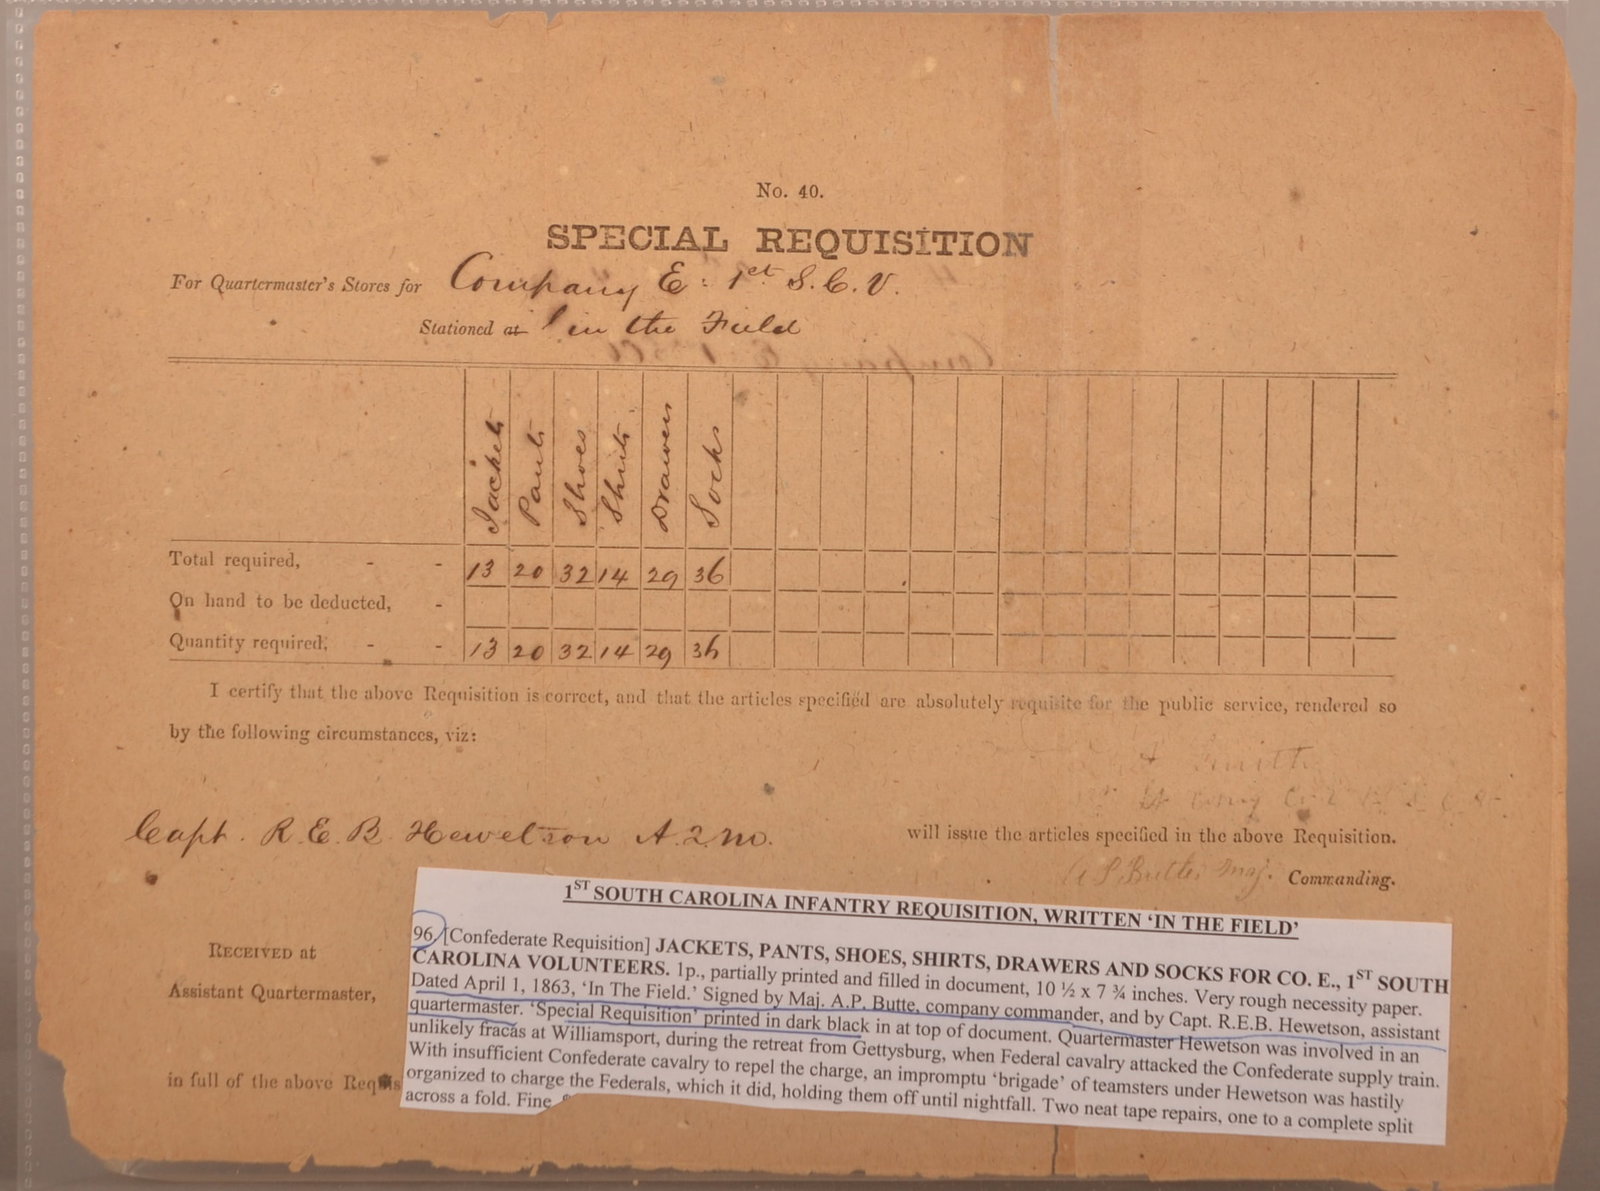 No. 40.
SPECIAL REQUISITION
For Quartermaster's Stores for Company E. 1st S. C. V.
Stationed at in the Field
Jackets Pants Shoes Shirts Drawers Socks
Total required, - - 13 20 32 14 29 36
On hand to be deducted, -
Quantity required, - - 13 20 32 14 29 36
I certify that the above Requisition is correct, and that the articles specified are absolutely requisite for the public service, rendered so
by the following circumstances, viz:
Smith
Capt. R. E. B. Hewetson A. Q. M. will issue the articles specified in the above Requisition.
A P. Butler Maj. Commanding.
RECEIVED at
Assistant Quartermaster,
in full of the above
1ST SOUTH CAROLINA INFANTRY REQUISITION, WRITTEN ‘IN THE FIELD’
96 [Confederate Requisition] JACKETS, PANTS, SHOES, SHIRTS, DRAWERS AND SOCKS FOR CO. E., 1ST SOUTH
CAROLINA VOLUNTEERS. 1p., partially printed and filled in document, 10 ½ x 7 ¾ inches. Very rough necessity paper.
Dated April 1, 1863, ‘In The Field.’ Signed by Maj. A.P. Butte, company commander, and by Capt. R.E.B. Hewetson, assistant
quartermaster. ‘Special Requisition’ printed in dark black in at top of document. Quartermaster Hewetson was involved in an
unlikely fracas at Williamsport, during the retreat from Gettysburg, when Federal cavalry attacked the Confederate supply train.
With insufficient Confederate cavalry to repel the charge, an impromptu ‘brigade’ of teamsters under Hewetson was hastily
organized to charge the Federals, which it did, holding them off until nightfall. Two neat tape repairs, one to a complete split
across a fold. Fine